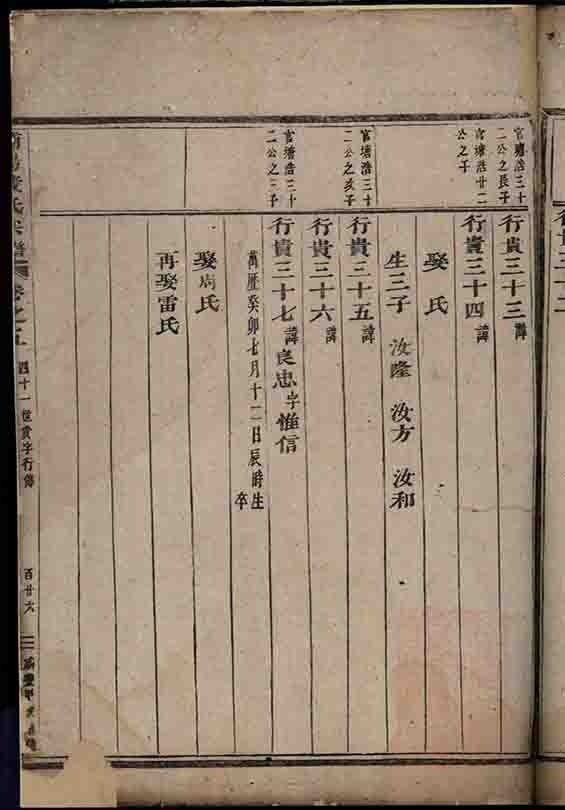 行貴三十二
官塘浩三十
二公之長子
行貴三十三 諱
官塘浩廿二
公之子
行貴三十四 諱
娶 氏
生三子 汝隆 汝方 汝和
官塘浩三十
二公之次子
行貴三十五 諱
行貴三十六 諱
官塘浩三十
二公之三子
行貴三十七 諱良忠 字惟信
萬歷癸卯七月十二日辰時生
卒
娶周氏
再娶雷氏
氏宗譜
卷之五
四十一世貴字行傳
百廿六